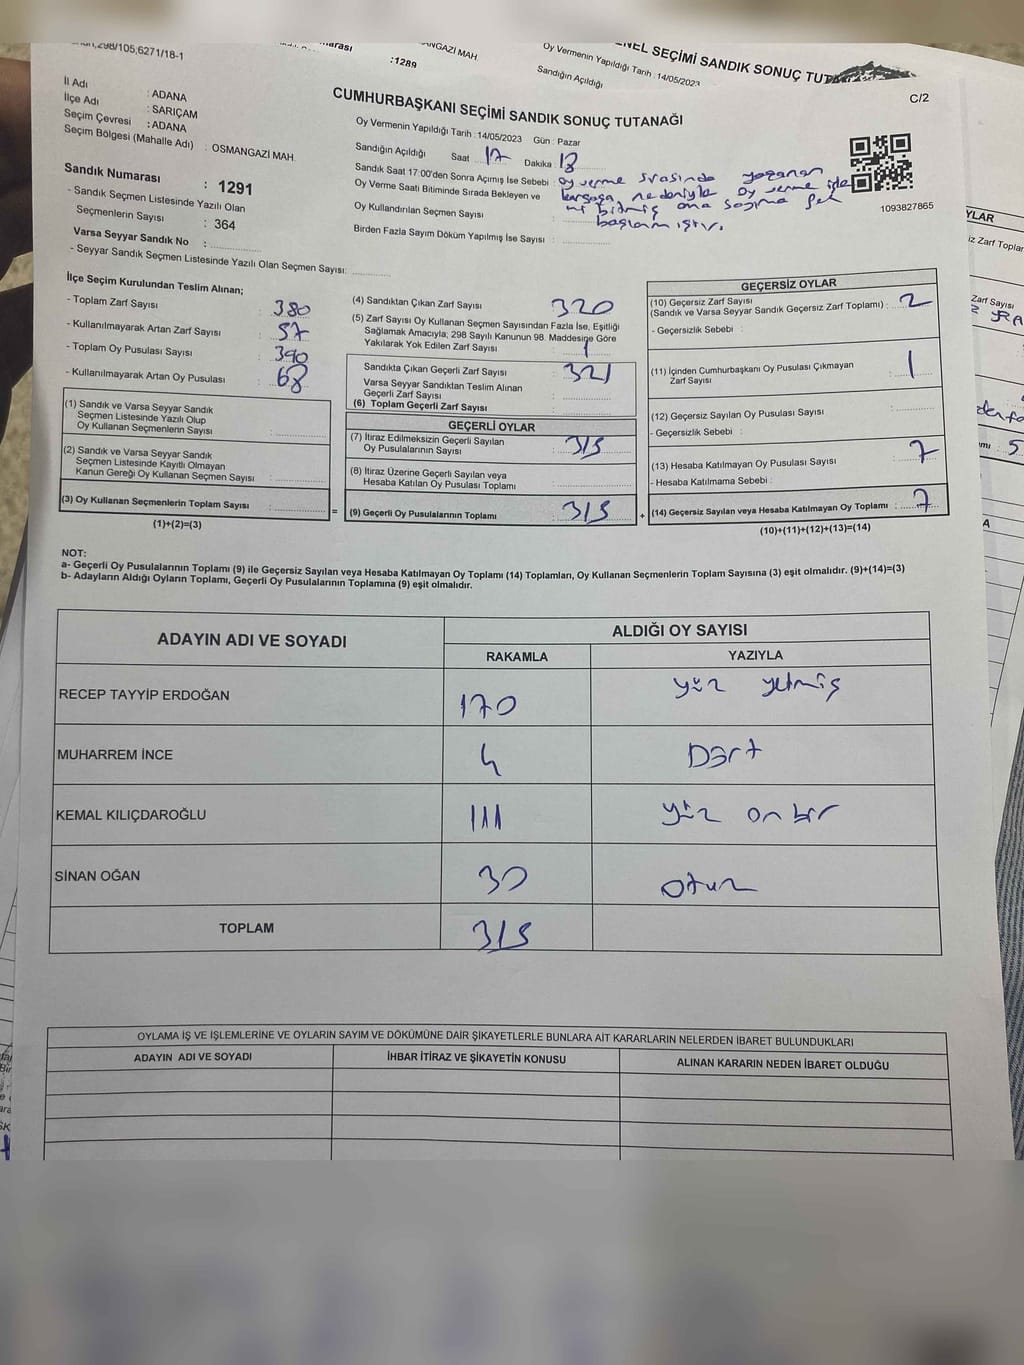 298/105,6271/18-1
:1289
NGAZİ MAH
Oy Vermenin Yapıldığı Tarih : 14/05/2023
Sandığın Açıldığı
NEL SEÇİMİ SANDIK SONUÇ TUT
C/2
İl Adı : ADANA
İlçe Adı : SARIÇAM
Seçim Çevresi : ADANA
Seçim Bölgesi (Mahalle Adı) : OSMANGAZİ MAH.
CUMHURBAŞKANI SEÇİMİ SANDIK SONUÇ TUTANAĞI
Oy Vermenin Yapıldığı Tarih : 14/05/2023 Gün : Pazar
Sandığın Açıldığı Saat 17 Dakika : 13
Sandık Saat 17:00'den Sonra Açımış İse Sebebi : oy verme sırasında yaşanan
Oy Verme Saati Bitiminde Sırada Bekleyen ve kargaşa nedeniyle oy verme işle
Oy Kullandırılan Seçmen Sayısı : mi bitmiş ona sayıma
Birden Fazla Sayım Döküm Yapılmış İse Sayısı : başlamıştır.
1093827865
Sandık Numarası : 1291
- Sandık Seçmen Listesinde Yazılı Olan
Seçmenlerin Sayısı : 364
Varsa Seyyar Sandık No :
- Seyyar Sandık Seçmen Listesinde Yazılı Olan Seçmen Sayısı:
İlçe Seçim Kurulundan Teslim Alınan;
- Toplam Zarf Sayısı : 380
- Kullanılmayarak Artan Zarf Sayısı : 57
- Toplam Oy Pusulası Sayısı : 390
- Kullanılmayarak Artan Oy Pusulası : 68
(1) Sandık ve Varsa Seyyar Sandık
Seçmen Listesinde Yazılı Olup
Oy Kullanan Seçmenlerin Sayısı :
(2) Sandık ve Varsa Seyyar Sandık
Seçmen Listesinde Kayıtlı Olmayan
Kanun Gereği Oy Kullanan Seçmen Sayısı :
(3) Oy Kullanan Seçmenlerin Toplam Sayısı :
(1)+(2)=(3)
=
(4) Sandıktan Çıkan Zarf Sayısı 320
(5) Zarf Sayısı Oy Kullanan Seçmen Sayısından Fazla İse, Eşitliği
Sağlamak Amacıyla; 298 Sayılı Kanunun 98. Maddesine Göre
Yakılarak Yok Edilen Zarf Sayısı : 1
Sandıkta Çıkan Geçerli Zarf Sayısı : 321
Varsa Seyyar Sandıktan Teslim Alınan
Geçerli Zarf Sayısı :
(6) Toplam Geçerli Zarf Sayısı :
GEÇERLİ OYLAR
(7) İtiraz Edilmeksizin Geçerli Sayılan
Oy Pusulalarının Sayısı : 315
(8) İtiraz Üzerine Geçerli Sayılan veya
Hesaba Katılan Oy Pusulası Toplamı :
(9) Geçerli Oy Pusulalarının Toplamı : 315
+
GEÇERSİZ OYLAR
(10) Geçersiz Zarf Sayısı
(Sandık ve Varsa Seyyar Sandık Geçersiz Zarf Toplamı) : 2
- Geçersizlik Sebebi :
(11) İçinden Cumhurbaşkanı Oy Pusulası Çıkmayan
Zarf Sayısı : 1
(12) Geçersiz Sayılan Oy Pusulası Sayısı :
- Geçersizlik Sebebi :
(13) Hesaba Katılmayan Oy Pusulası Sayısı : 7
- Hesaba Katılmama Sebebi :
(14) Geçersiz Sayılan veya Hesaba Katılmayan Oy Toplamı : 7
(10)+(11)+(12)+(13)=(14)
NOT:
a- Geçerli Oy Pusulalarının Toplamı (9) ile Geçersiz Sayılan veya Hesaba Katılmayan Oy Toplamı (14) Toplamları, Oy Kullanan Seçmenlerin Toplam Sayısına (3) eşit olmalıdır. (9)+(14)=(3)
b- Adayların Aldığı Oyların Toplamı, Geçerli Oy Pusulalarının Toplamına (9) eşit olmalıdır.
ADAYIN ADI VE SOYADI ALDIĞI OY SAYISI
RAKAMLA YAZIYLA
RECEP TAYYİP ERDOĞAN 170 yüz yetmiş
MUHARREM İNCE 4 Dört
KEMAL KILIÇDAROĞLU 111 yüz on bir
SİNAN OĞAN 30 otuz
TOPLAM 315
OYLAMA İŞ VE İŞLEMLERİNE VE OYLARIN SAYIM VE DÖKÜMÜNE DAİR ŞİKAYETLERLE BUNLARA AİT KARARLARIN NELERDEN İBARET BULUNDUKLARI
ADAYIN ADI VE SOYADI İHBAR İTİRAZ VE ŞİKAYETİN KONUSU ALINAN KARARIN NEDEN İBARET OLDUĞU